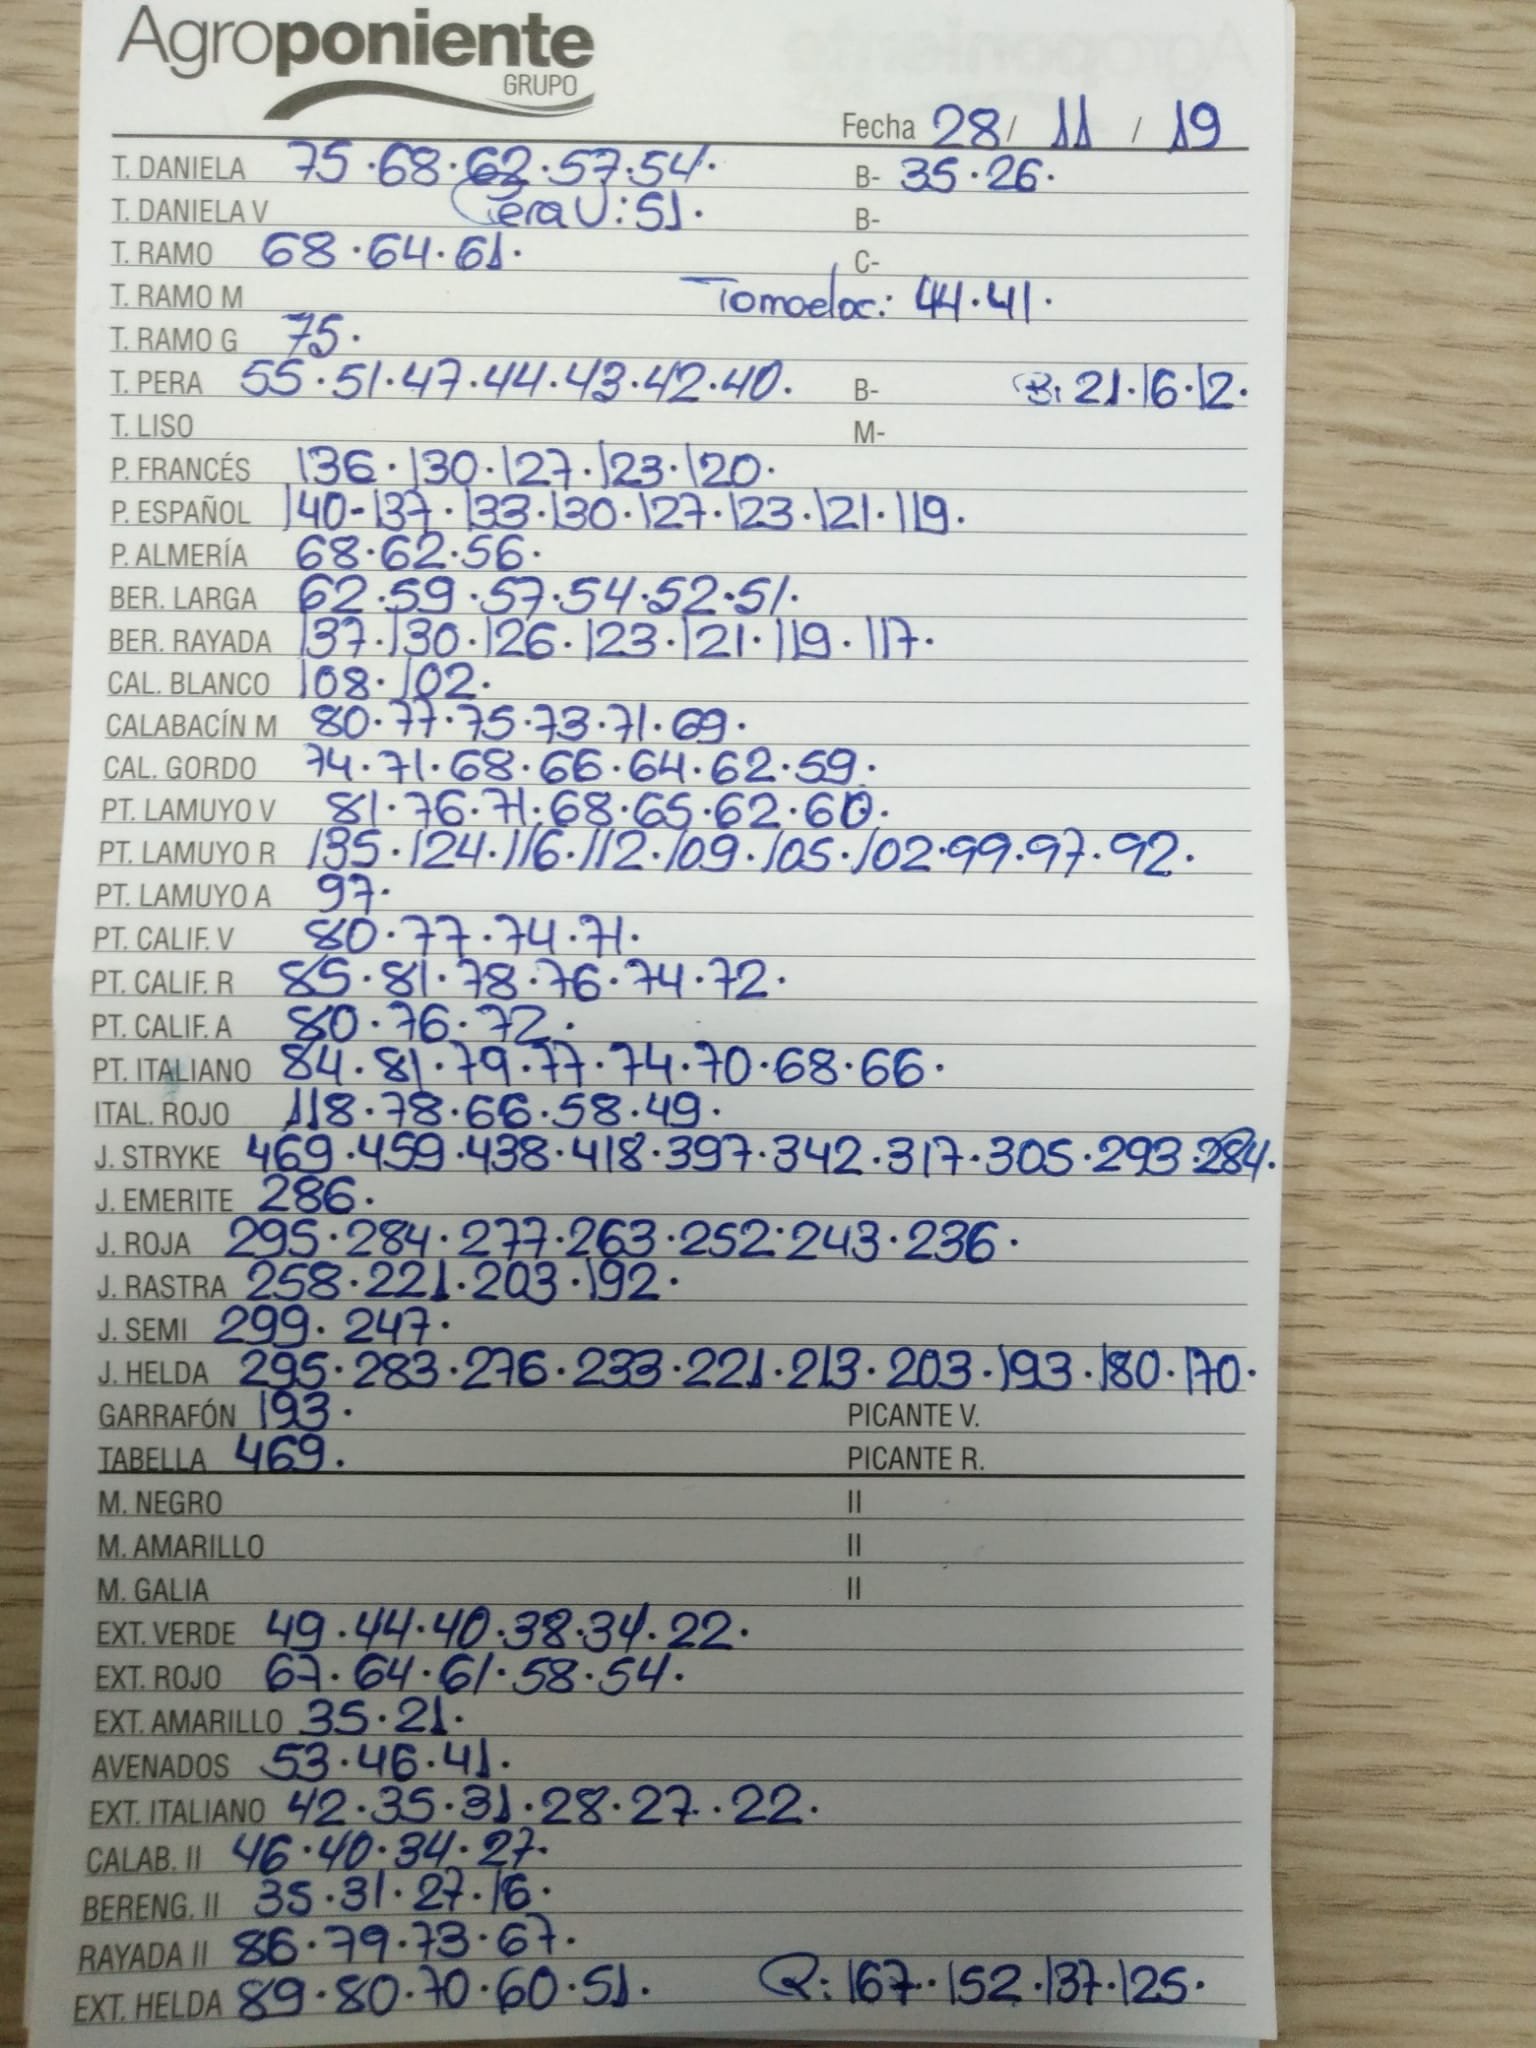 Agroponiente
GRUPO
Fecha 28 / 11 / 19
T. DANIELA 75·68·62·57·54· B- 35·26·
T. DANIELA V Pera V: 51· B-
T. RAMO 68·64·61· C-
T. RAMO M Tomoeloc: 44·41·
T. RAMO G 75·
T. PERA 55·51·47·44·43·42·40· B- B: 21·16·12·
T. LISO M-
P. FRANCÉS 136·130·127·123·120·
P. ESPAÑOL 140-137·133·130·127·123·121·119·
P. ALMERÍA 68·62·56·
BER. LARGA 62·59·57·54·52·51·
BER. RAYADA 137·130·126·123·121·119·117·
CAL. BLANCO 108·102·
CALABACÍN M 80·77·75·73·71·69·
CAL. GORDO 74·71·68·66·64·62·59·
PT. LAMUYO V 81·76·71·68·65·62·60·
PT. LAMUYO R 135·124·116·112·109·105·102·99·97·92·
PT. LAMUYO A 97·
PT. CALIF. V 80·77·74·71·
PT. CALIF. R 85·81·78·76·74·72·
PT. CALIF. A 80·76·72·
PT. ITALIANO 84·81·79·77·74·70·68·66·
ITAL. ROJO 118·78·66·58·49·
J. STRYKE 469·459·438·418·397·342·317·305·293·284·
J. EMERITE 286·
J. ROJA 295·284·277·263·252·243·236·
J. RASTRA 258·221·203·192·
J. SEMI 299·247·
J. HELDA 295·283·276·233·221·213·203·193·180·170·
GARRAFÓN 193· PICANTE V.
TABELLA 469· PICANTE R.
M. NEGRO II
M. AMARILLO II
M. GALIA II
EXT. VERDE 49·44·40·38·34·22·
EXT. ROJO 67·64·61·58·54·
EXT. AMARILLO 35·21·
AVENADOS 53·46·41·
EXT. ITALIANO 42·35·31·28·27·22·
CALAB. II 46·40·34·27·
BERENG. II 35·31·27·16·
RAYADA II 86·79·73·67·
EXT. HELDA 89·80·70·60·51· Q: 167·152·137·125·